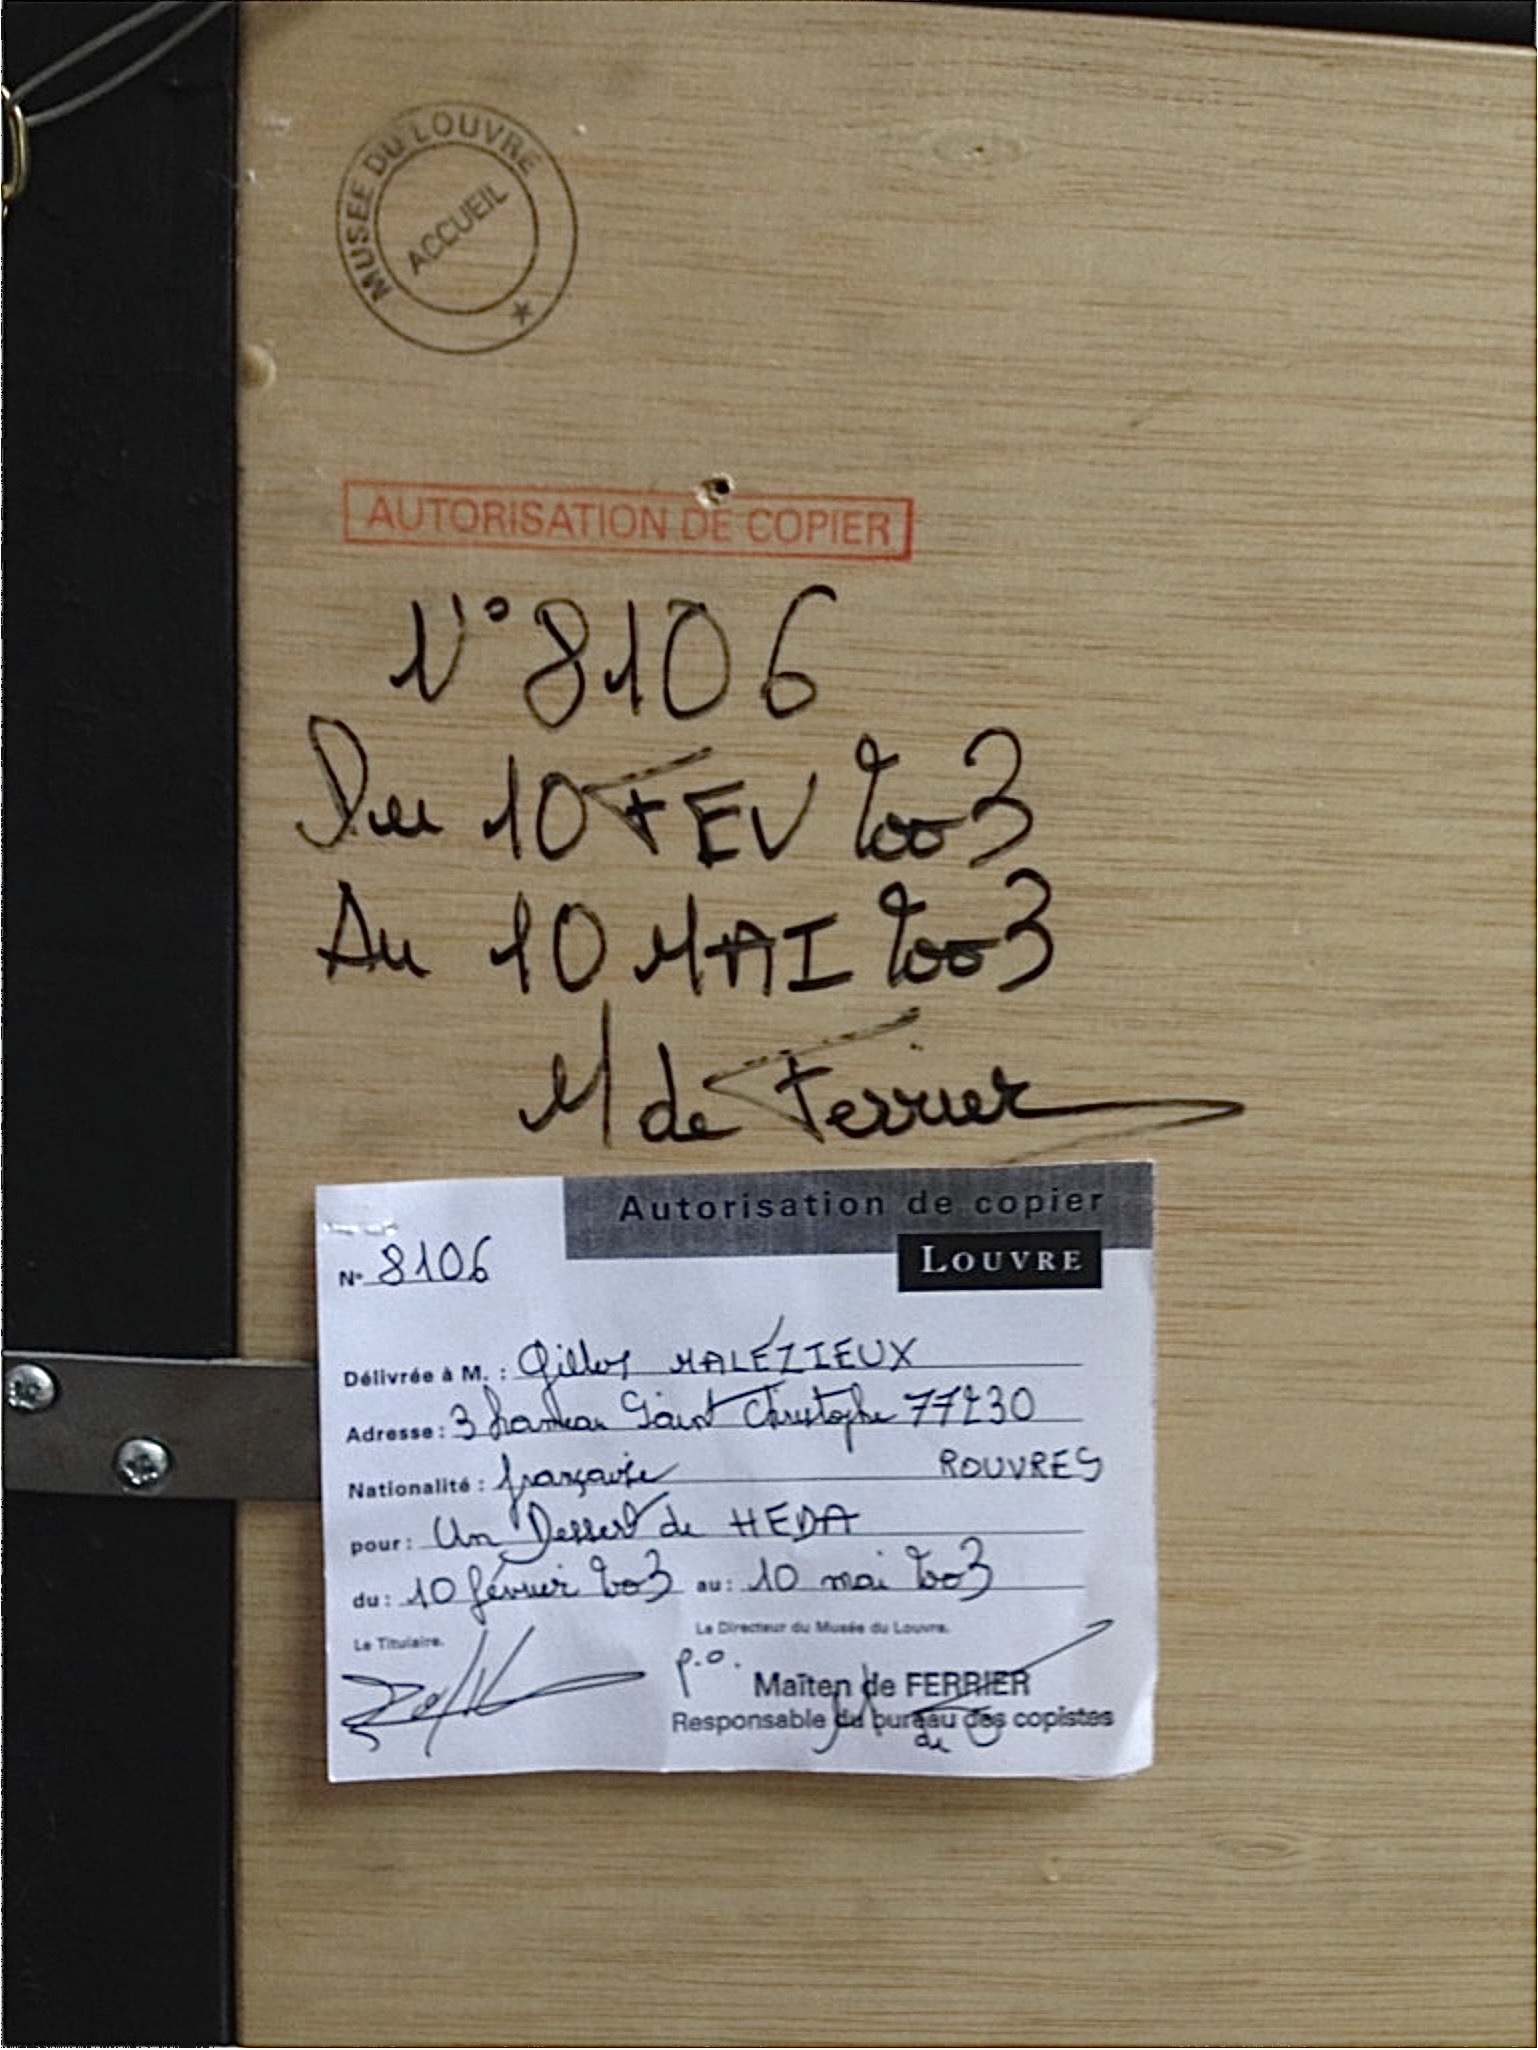 MUSEE DU LOUVRE
ACCUEIL
AUTORISATION DE COPIER
N° 8106
Du 10 FEV 2003
Au 10 MAI 2003
M de Ferrier
Autorisation de copier
LOUVRE
N° 8106
Délivrée à M. : Gilles MALÉZIEUX
Adresse : 3 hameau Saint Christophe 77230
ROUVRES
Nationalité : française
pour : Un Dessert de HEDA
du : 10 février 2003 au : 10 mai 2003
Le Titulaire. Le Directeur du Musée du Louvre.
p.o.
Maïten de FERRIER
Responsable du bureau des copistes